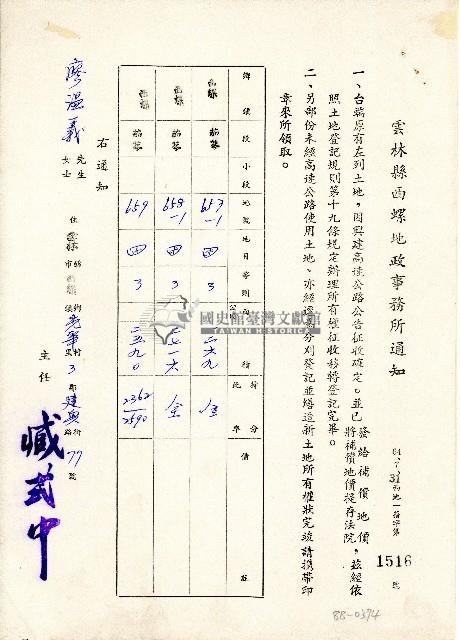 雲林縣西螺地政事務所通知
64.7.31西地一登字第1516號
一、台端原有左列土地,因興建高速公路公告征收確定。並已發給補償地價
將補償地價提存法院,茲經依
照土地登記規則第十九條規定辦理所有權征收移轉登記完畢。
二、另部份未經高速公路使用土地、亦經逕為分割登記並繕造新土地所有權狀完竣請携帶印
章來所領取。
鄉鎮 段 小段 地號 地目 等則 面積 持分 地價 註
西螺 茄苳 657-1 田 3 二六九 全
西螺 茄苳 658-1 田 3 二七一六 全
西螺 茄苳 659 田 3 二五九〇 2362/2590
右通知
廖溫義 先生
女士
住 雲林 縣市 西螺 鄉鎮 里村 3 鄰 建興 路街 77 號
主任 臧英中
國史館臺灣文獻館
TAIWAN HISTORICA
88-0374